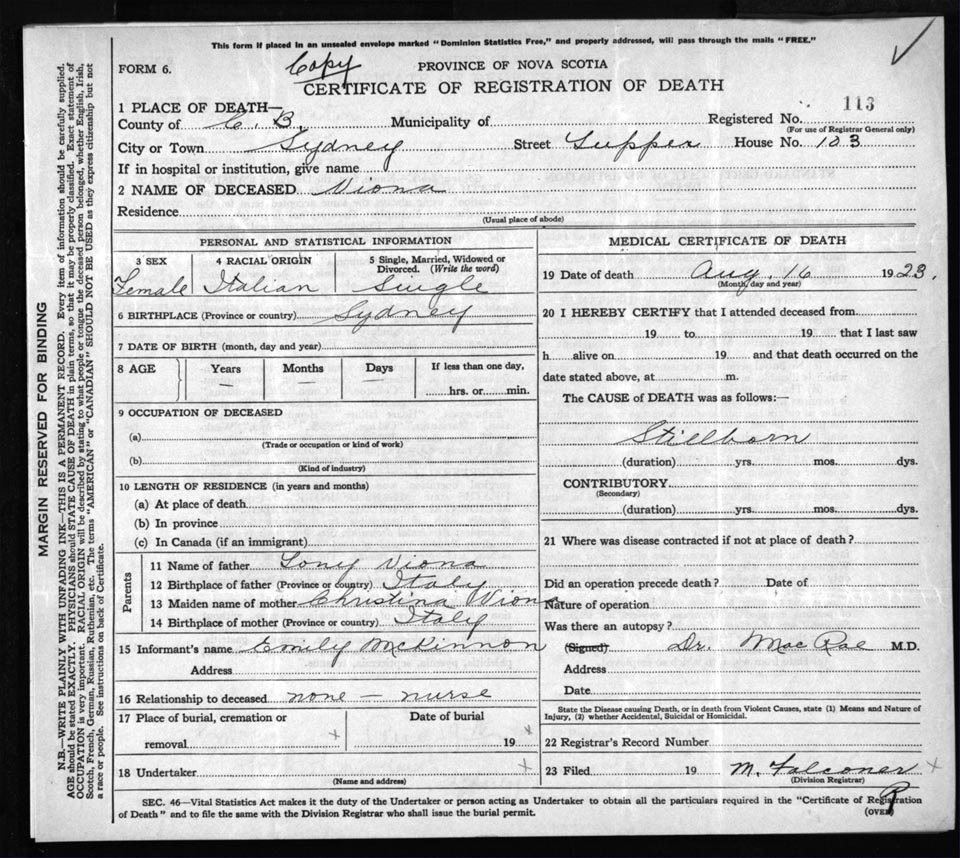 This form if placed in an unsealed envelope marked "Dominion Statistics Free," and properly addressed, will pass through the mails "FREE."
FORM 6.
Copy
PROVINCE OF NOVA SCOTIA
CERTIFICATE OF REGISTRATION OF DEATH
113
1 PLACE OF DEATH—
County of C. B. Municipality of Registered No.
(For use of Registrar General only)
City or Town Sydney Street Tupper House No. 103
If in hospital or institution, give name
2 NAME OF DECEASED Viona
Residence
(Usual place of abode)
PERSONAL AND STATISTICAL INFORMATION
3 SEX 4 RACIAL ORIGIN 5 Single, Married, Widowed or Divorced. (Write the word)
Female Italian Single
6 BIRTHPLACE (Province or country) Sydney
7 DATE OF BIRTH (month, day and year)
8 AGE Years Months Days If less than one day,
— — — hrs. or min.
9 OCCUPATION OF DECEASED
(a)
(Trade or occupation or kind of work)
(b)
(Kind of industry)
10 LENGTH OF RESIDENCE (in years and months)
(a) At place of death
(b) In province
(c) In Canada (if an immigrant)
Parents
11 Name of father Tony Viona
12 Birthplace of father (Province or country) Italy
13 Maiden name of mother Christina Viona
14 Birthplace of mother (Province or country) Italy
15 Informant's name Emily McKinnon
Address
16 Relationship to deceased none — nurse
17 Place of burial, cremation or Date of burial
removal x 19 x
18 Undertaker x
(Name and address)
MEDICAL CERTIFICATE OF DEATH
19 Date of death Aug. 16 1923.
(Month, day and year)
20 I HEREBY CERTIFY that I attended deceased from
19 to 19 that I last saw
h alive on 19 and that death occurred on the
date stated above, at m.
The CAUSE of DEATH was as follows:—
Stillborn
(duration) yrs. mos. dys.
CONTRIBUTORY
(Secondary)
(duration) yrs. mos. dys.
21 Where was disease contracted if not at place of death?
Did an operation precede death? Date of
Nature of operation
Was there an autopsy?
(Signed) Dr. MacRae M.D.
Address
Date
State the Disease causing Death, or in death from Violent Causes, state (1) Means and Nature of
Injury, (2) whether Accidental, Suicidal or Homicidal.
22 Registrar's Record Number
23 Filed 19 M. Falconer x
(Division Registrar)
SEC. 46—Vital Statistics Act makes it the duty of the Undertaker or person acting as Undertaker to obtain all the particulars required in the "Certificate of Registration
of Death" and to file the same with the Division Registrar who shall issue the burial permit.
(OVER)
R
MARGIN RESERVED FOR BINDING
N.B.—WRITE PLAINLY WITH UNFADING INK—THIS IS A PERMANENT RECORD. Every item of information should be carefully supplied.
AGE should be stated EXACTLY. PHYSICIANS should STATE CAUSE OF DEATH in plain terms, so that it may be properly classified. Exact statement of
OCCUPATION is very important. RACIAL ORIGIN will be described by stating to what people or tongue the deceased person belonged, whether English, Irish,
Scotch, French, German, Russian, Ruthenian, etc. The terms "AMERICAN" or "CANADIAN" SHOULD NOT BE USED as they express citizenship but not
a race or people. See instructions on back of Certificate.